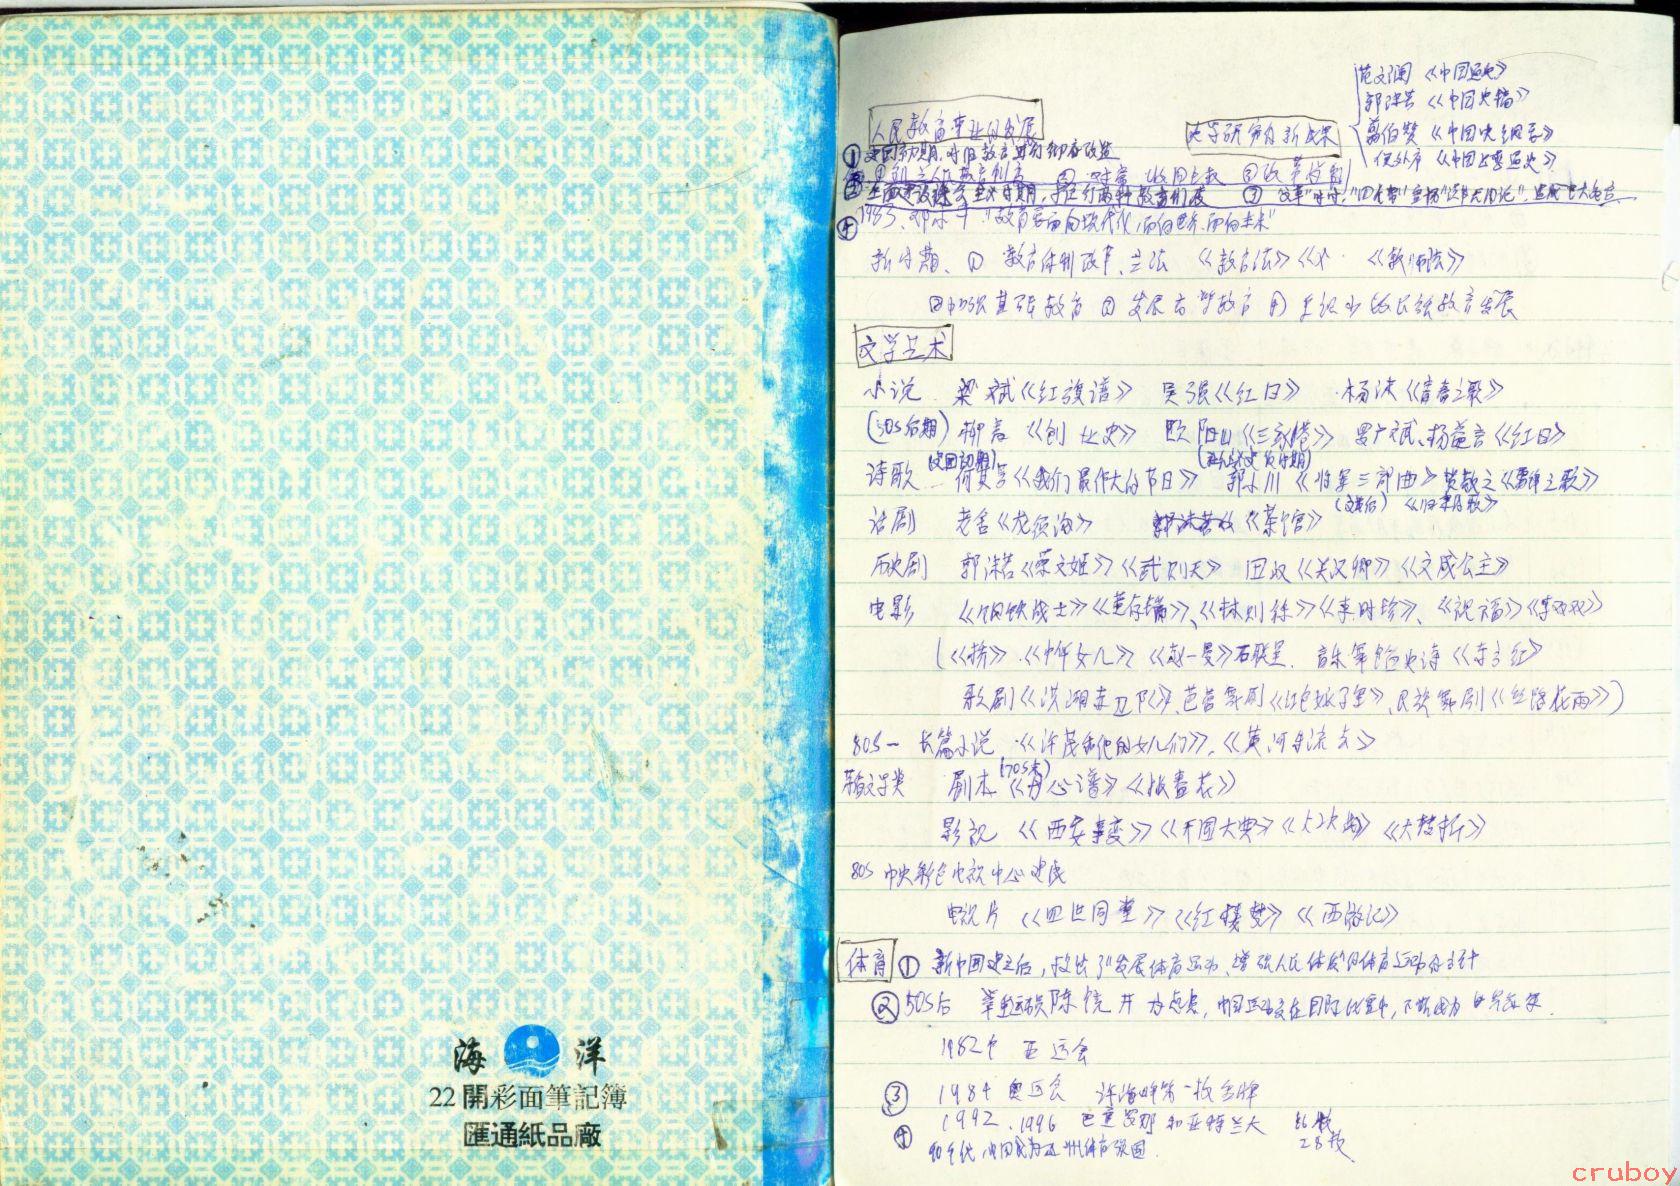 海 洋
22開彩面筆記簿
匯通紙品廠
范文澜《中国通史》
郭沫若《中国史稿》
翦伯赞《中国史纲要》
《中国上古史》
人民教育事业的发展
史学研究的新成果
① 建国初期,对旧教育进行
④ 1983、邓小平:"教育要面向现代化,面向世界,面向未来"
新时期、① 教育体制改革、立法 《教育法》《义 《教师法》
②加强基础教育 ③ 发展高等教育 ④ 少数民族教育发展
文学艺术
小说 梁斌《红旗谱》 吴强《红日》 杨沫《青春之歌》
(50S后期) 柳青《创业史》 欧阳山《三家巷》 罗广斌、杨益言《红日》
(建国初期)
诗歌 何其芳《我们最伟大的节日》 郭小川《将军三部曲》贺敬之《雷锋之歌》
(文革后) 《回一月歌》
话剧 老舍《龙须沟》 《茶馆》
历史剧 郭沫若《蔡文姬》《武则天》 田汉《关汉卿》《文成公主》
电影 《钢铁战士》《董存瑞》、《林则徐》《李时珍》、《祝福》《李双双》
(《桥》·《中华女儿》《赵一曼》石联星. 音乐舞蹈史诗《东方红》
歌剧《洪湖赤卫队》、芭蕾舞剧《红色娘子军》、民族舞剧《丝路花雨》)
80S- 长篇小说 ·《许茂和他的女儿们》,《黄河东流去》
茅盾文学奖 剧本 (70S末)《丹心谱》《报春花》
影视 《西安事变》《开国大典》《大决战》《大转折》
80S 中央彩色电视中心建成
电视片 《四世同堂》《红楼梦》《西游记》
体育 ① 新中国建立后,提出了"发展体育运动、增强人民体质"的体育运动方针
② 50S后 举重运动员陈镜开为起点,中国运动员在国际比赛中,不断成为世界冠军.
1982年 亚运会
③ 1984 奥运会 许海峰第一枚金牌
1992、1996 巴塞罗那和亚特兰大
④ 90年代,中国成为亚洲体育强国.
28枚
cruboy